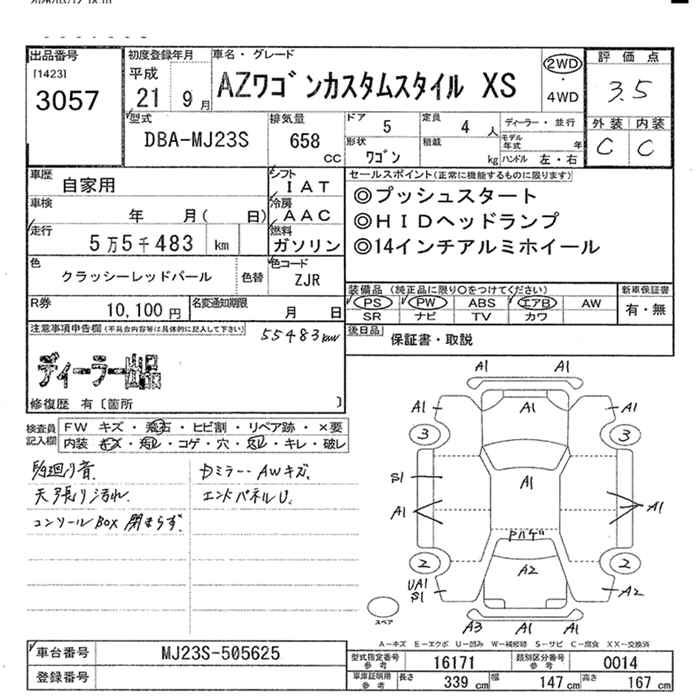 出品番号
[1423]
3057
初度登録年月
平成
21 9 月
車名・グレード
AZワゴンカスタムスタイル XS
2WD
・
4WD
評価点
3.5
外装 内装
C C
型式
DBA-MJ23S
排気量
658
CC
ドア 5
形状 ワゴン
定員 4 人
積載 kg
ディーラー・並行
モデル年式 年
ハンドル 左・右
車歴 自家用
シフト IAT
車検 年 月( 日)
冷房 AAC
走行 5万5千483 km
燃料 ガソリン
色 クラッシーレッドパール
色替
色コード ZJR
R券 10,100 円
名変通知期限 月 日
セールスポイント(正常に機能するものに限ります)
◎プッシュスタート
◎HIDヘッドランプ
◎14インチアルミホイール
装備品 (純正品に限り○をつけてください)
PS PW ABS エアB AW
SR ナビ TV カワ
新車保証書
有・無
後日品
保証書・取説
注意事項申告欄(不具合内容等は具体的に記入して下さい)
55483km
ディーラー出品
修復歴 有〔箇所 〕
検査員記入欄
FW キズ・飛石・ヒビ割・リペア跡・×要
内装 キズ・汚レ・コゲ・穴・スレ・キレ・破レ
天張り汚れ
コンソールBOX 閉まらず
ドミラー・AWキズ
エンドパネルU.
A1 A1
A1 A1
3 3
A1
S1
A1 A1
ドハゲ
2 2
A2
UA1
S1
A2
A3 A1 A1
スペア
A-キズ E-エクボ U-凹み W-補修跡 S-サビ C-腐食 XX-交換済
車台番号 MJ23S-505625
登録番号
型式指定番号 参考 16171
類別区分番号 参考 0014
車庫証明用 参考 長さ 339 cm 幅 147 cm 高さ 167 cm